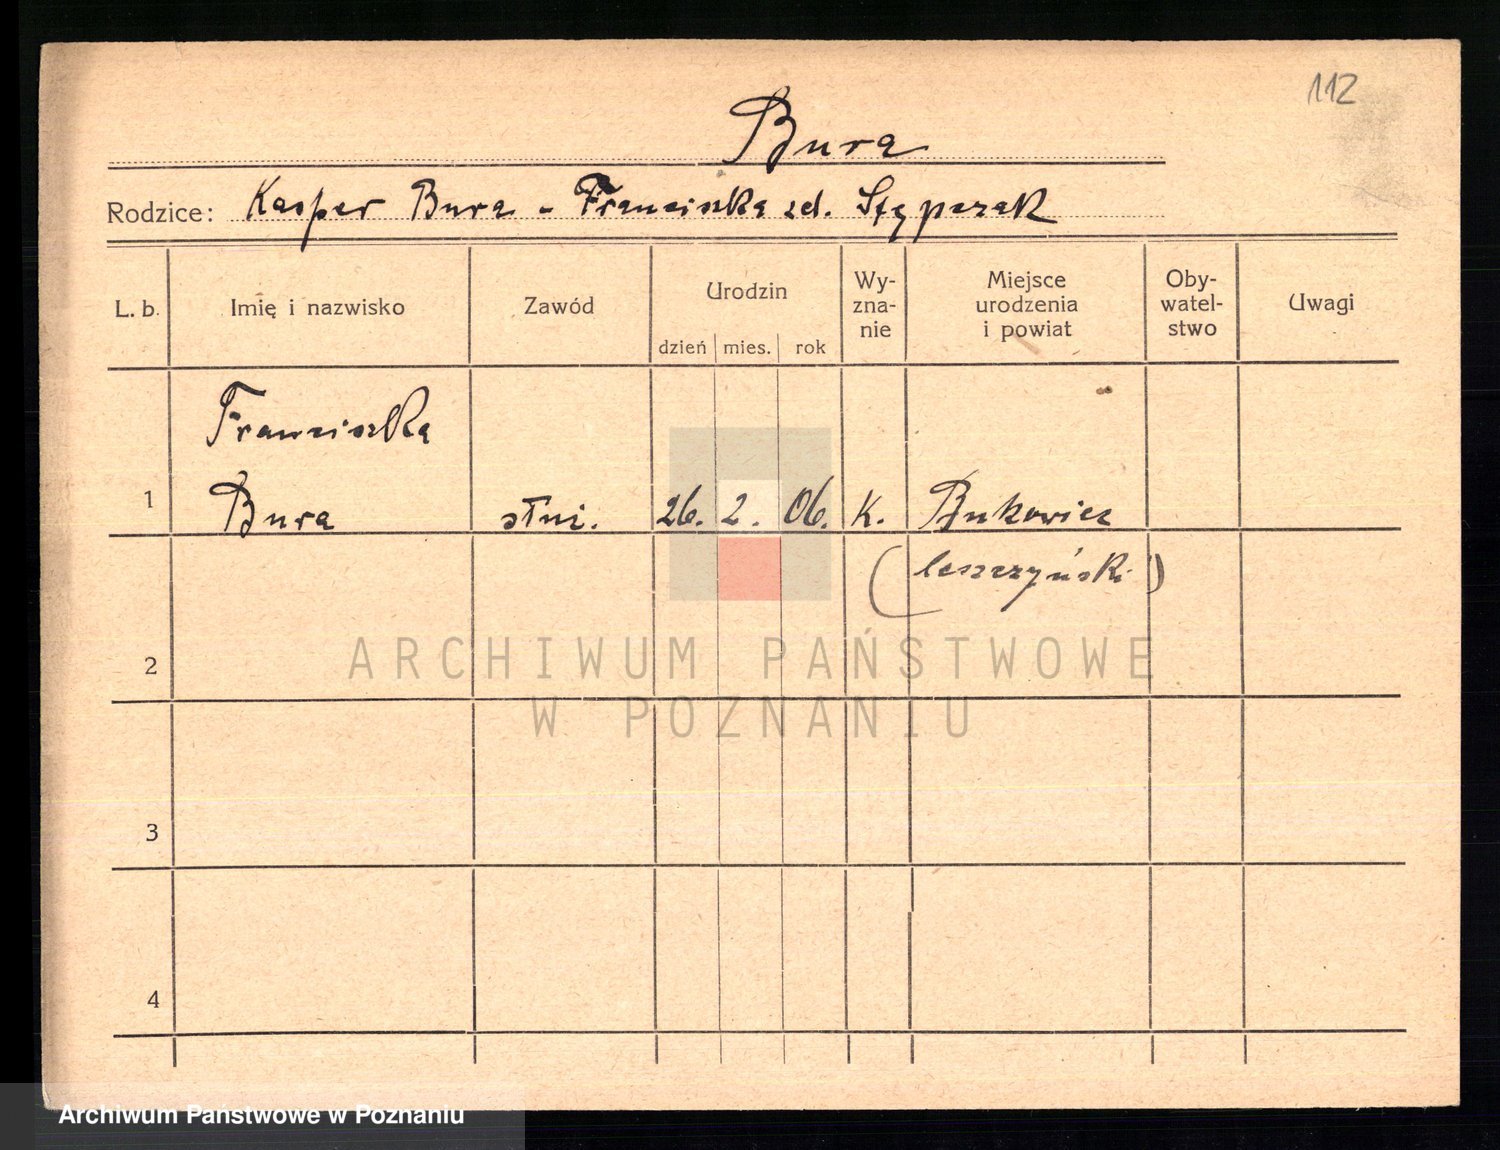 112
Bura
Rodzice: Kasper Bura - Franciszka zd. Stępczak
L. b. Imię i nazwisko Zawód Urodzin dzień mies. rok Wy-zna-nie Miejsce urodzenia i powiat Oby-watel-stwo Uwagi
Franciszka
1 Bura służ. 26. 2. 06. K. Bukowiec
(leszczyński)
2
ARCHIWUM PAŃSTWOWE
W POZNANIU
3
4
Archiwum Państwowe w Poznaniu